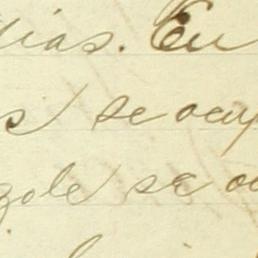 dias. En
s se ocup
gole se oc